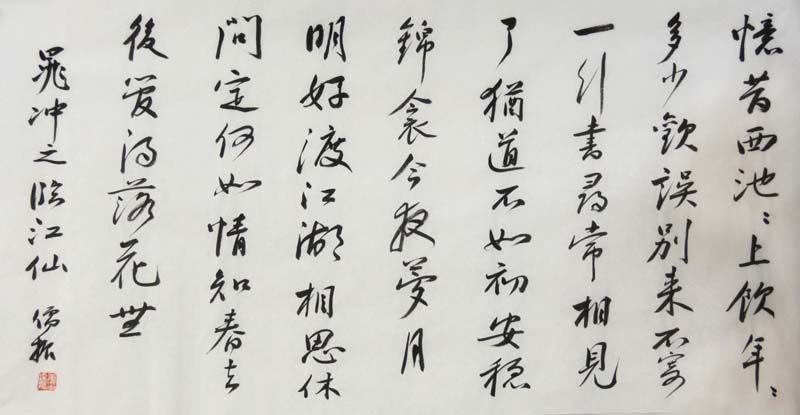 憶昔西池〻上飲年〻
多少歡誤別来不寄
一行書尋常相見
了猶道不如初安穏
錦衾今夜夢月
明好渡江湖相思休
問定何如情知春去
後管得落花無
晁冲之臨江仙